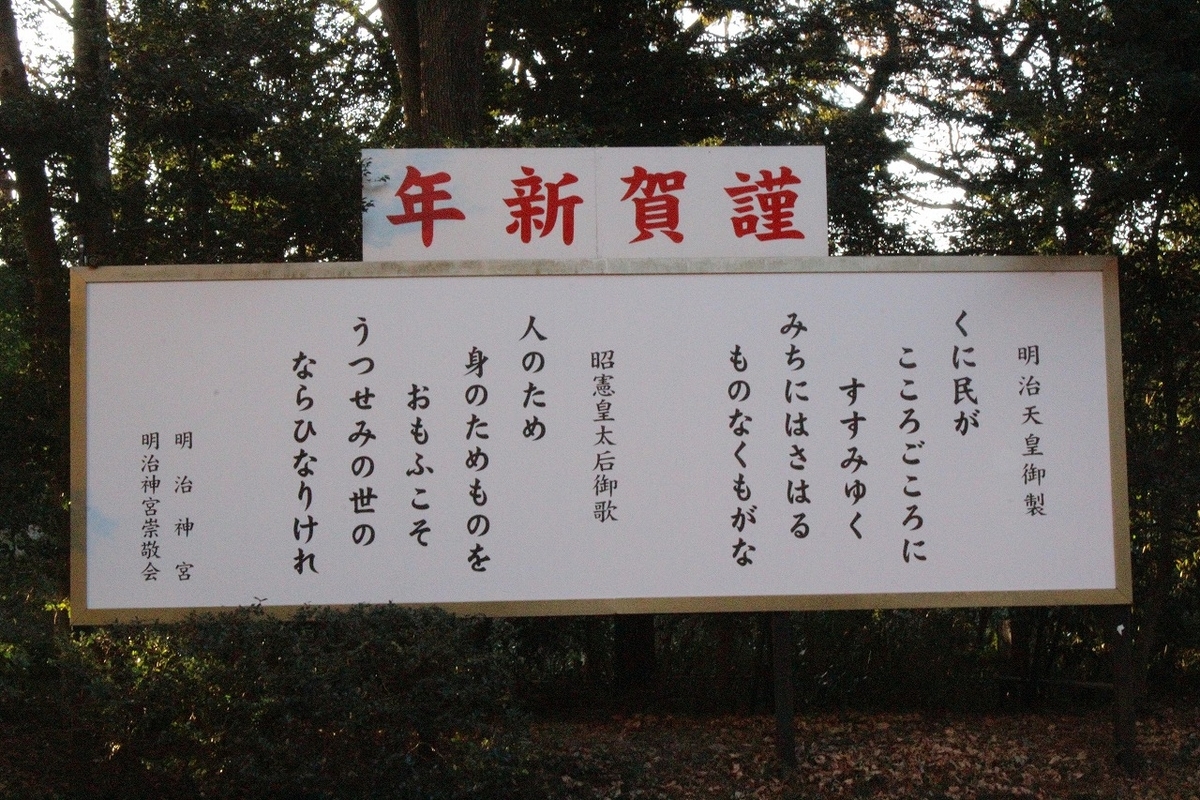 謹賀新年
明治天皇御製
くに民が
こころごころに
すすみゆく
みちにはさはる
ものなくもがな
昭憲皇太后御歌
人のため
身のためものを
おもふこそ
うつせみの世の
ならひなりけれ
明治神宮
明治神宮崇敬会